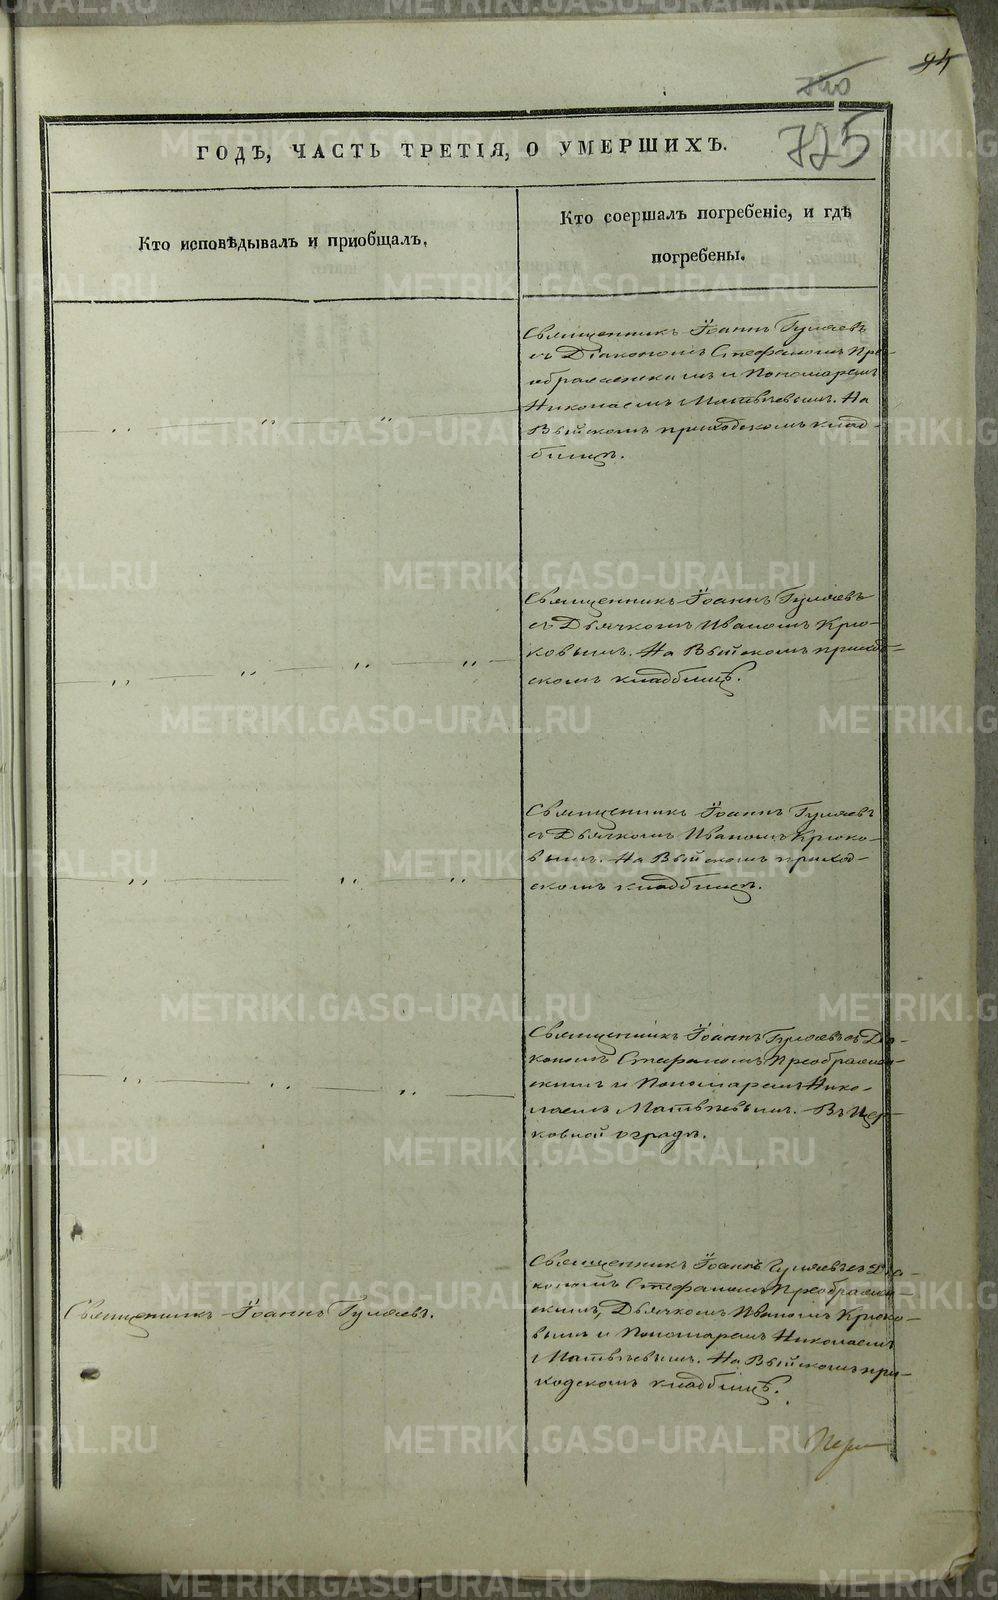 94
740
725
ГОДѢ, ЧАСТЬ ТРЕТІЯ, О УМЕРШИХЪ.
Кто исповѣдывалъ и приобщалъ.
Кто соершалъ погребеніе, и гдѣ
погребены.
Священникъ Іоаннъ Гуляевъ
съ Діакономъ Стефаномъ Пре-
ображенскимъ и Пономаремъ
Николаемъ Матвѣевымъ. На
Выйскомъ приходскомъ клад-
бищѣ.
Священникъ Іоаннъ Гуляевъ
съ Дьячкомъ Иваномъ Крю-
ковымъ. На Выйскомъ приход-
скомъ кладбищѣ.
Священникъ Іоаннъ Гуляевъ
съ Дьячкомъ Иваномъ Крюко-
вымъ. На Выйскомъ приход-
скомъ кладбищѣ.
Священникъ Іоаннъ Гуляевъ съ Діа-
кономъ Стефаномъ Преображен-
скимъ и Пономаремъ Нико-
лаемъ Матвѣевымъ. Въ Цер-
ковной оградѣ.
Священникъ Іоаннъ Гуляевъ.
Священникъ Іоаннъ Гуляевъ съ Діа-
кономъ Стефаномъ Преображен-
скимъ, Дьячкомъ Иваномъ Крюко-
вымъ и Пономаремъ Николаемъ
Матвѣевымъ. На Выйскомъ при-
ходскомъ кладбищѣ.
METRIKI.GASO-URAL.RU